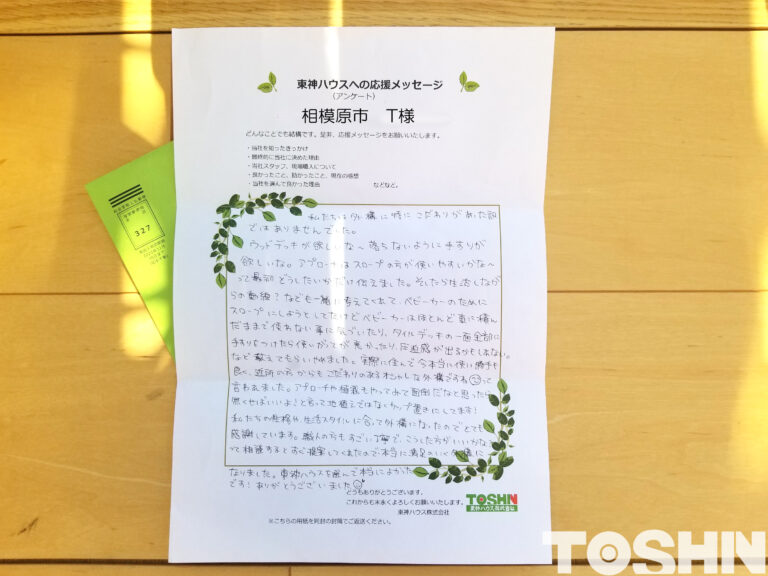 東神ハウスへの応援メッセージ
(アンケート)
相模原市 T様
どんなことでも結構です。是非、応援メッセージをお願いいたします。
・当社を知ったきっかけ
・最終的に当社に決めた理由
・当社スタッフ、現場職人について
・良かったこと、助かったこと、現在の感想
・当社を選んで良かった理由 などなど。
私たちは外構に特にこだわりがあった訳
ではありませんでした。
ウッドデッキが欲しいな〜落ちないように手すりが
欲しいな。アプローチはスロープの方が使いやすいかな〜
って最初どうしたいかだけ伝えました。そしたら生活しなが
らの動線?なども一緒に考えてくれて、ベビーカーのために
スロープにしようとしてたけどベビーカーはほとんど車に積ん
だままで使わない事に気づいたり、タイルデッキの一面全部に
手すりをつけたら使いがってが悪かったり、圧迫感が出るかもしれない。
など教えてもらいやめました。実際に住んで今本当に使い勝手も
良く、近所の方からもこだわりのあるオシャレな外構ですねって
言われました。アプローチや植栽もやってみて面倒だなと思ったら
無くせばいいよ!と言って地植えではなくカップ置きにしてます!
私たちの性格や、生活スタイルに合った外構になったのでとても
感謝しています。職人の方もすごい丁寧で、こうした方がいいかな
って相談するとすぐ提案してくれたので本当に満足のいく外構に
なりました。東神ハウスを選んで本当によかった
です!ありがとうございました
どうもありがとうございます。
これからも末永くよろしくお願いいたします。
東神ハウス株式会社
TOSHIN
東神ハウス株式会社
※こちらの用紙を同封の封筒でご返送ください。
327
TOSHIN